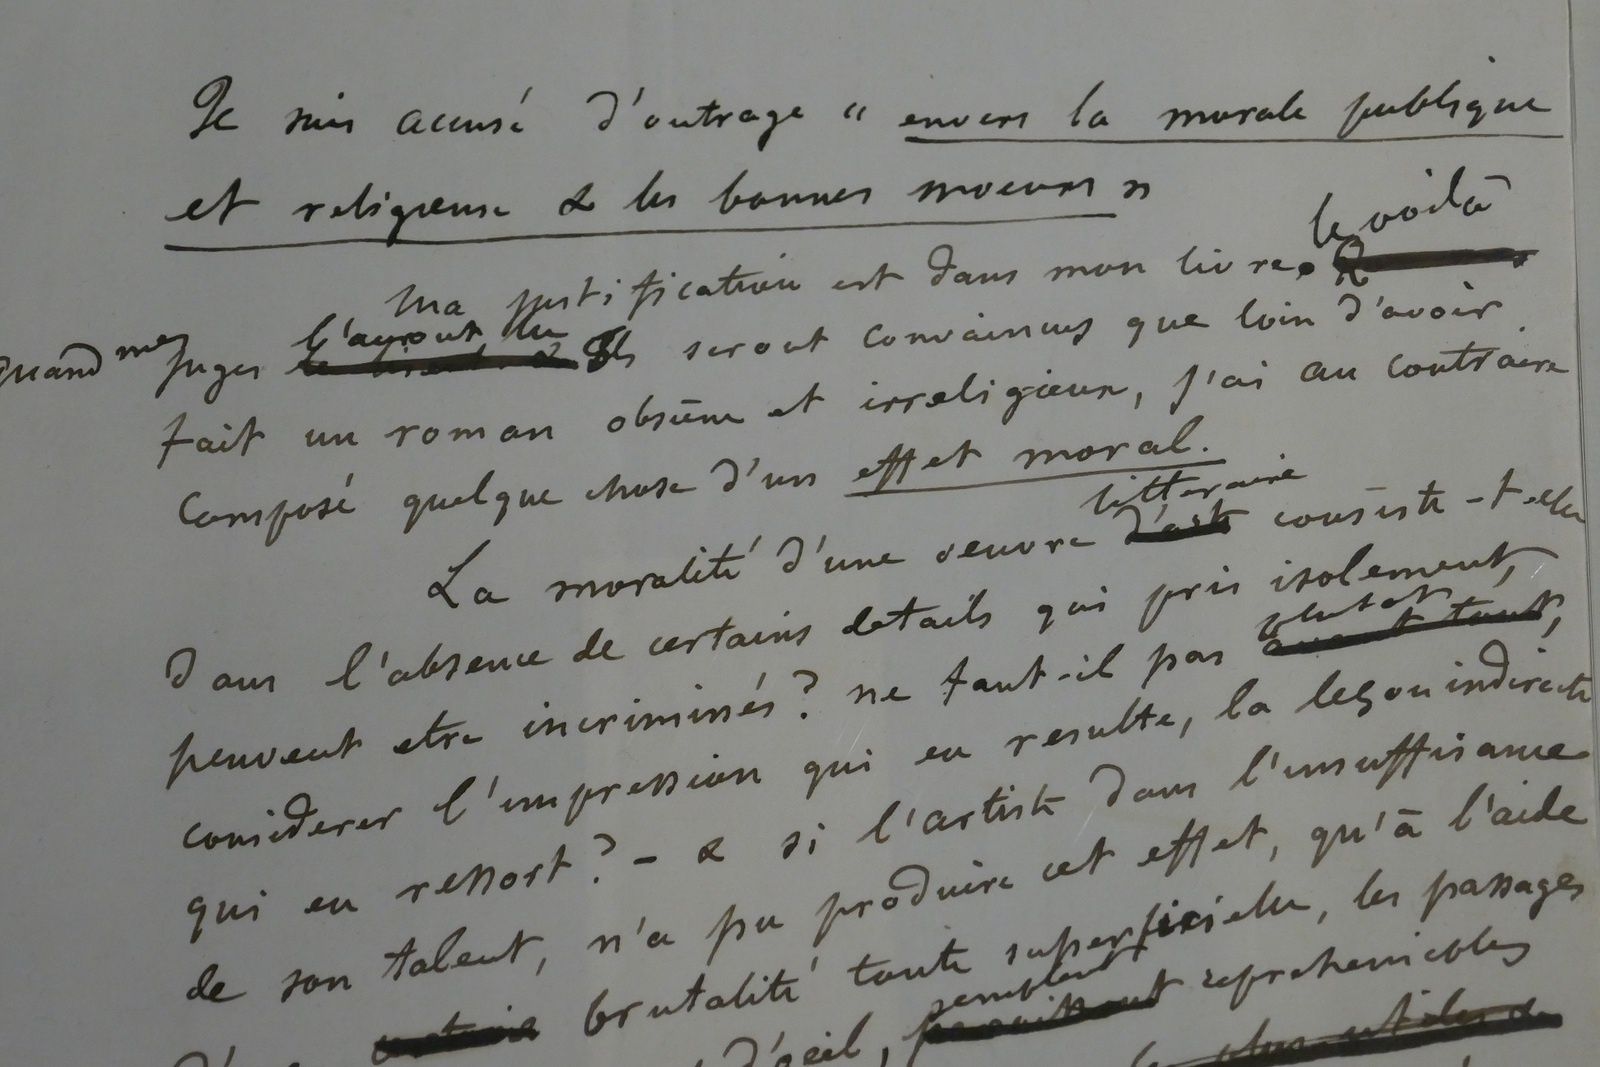 Je suis accusé d'outrage « envers la morale publique
et religieuse & les bonnes moeurs »
le voilà
Ma justification est dans mon livre.
l'auront lu
Quand mes juges le lisent & Ils seront convaincus que loin d'avoir
fait un roman obscène et irreligieux, j'ai au contraire
composé quelque chose d'un effet moral.
litteraire
La moralité d'une oeuvre d'art consiste-t-elle
dans l'absence de certains details qui pris isolement,
plutot
peuvent etre incriminés? ne faut-il pas avant tout,
considerer l'impression qui en resulte, la leçon indirecte
qui en ressort? – & si l'artiste dans l'insuffisance
de son talent, n'a pu produire cet effet, qu'à l'aide
brutalité toute superficielle, les passages
semblent
d'oeil, paraissent reprehensibles
plus utiles